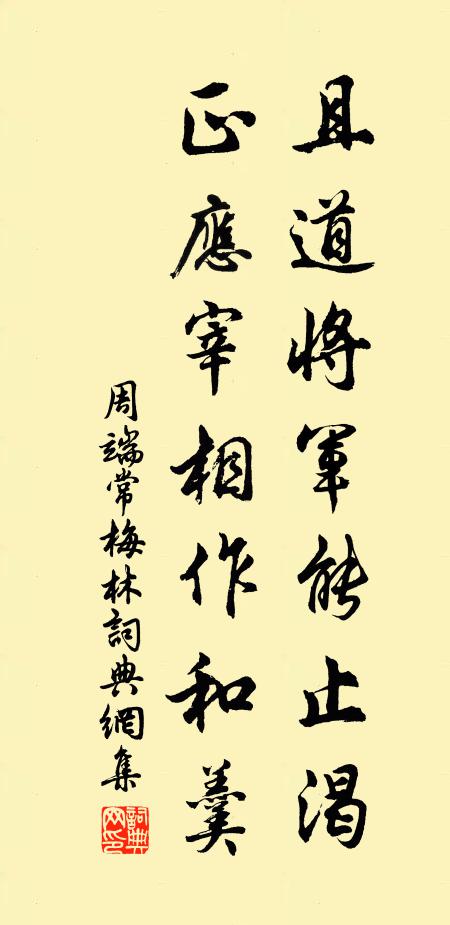 且道將軍能止渴
正應宰相作和羹
周端常梅林詞典網集
詞典網印